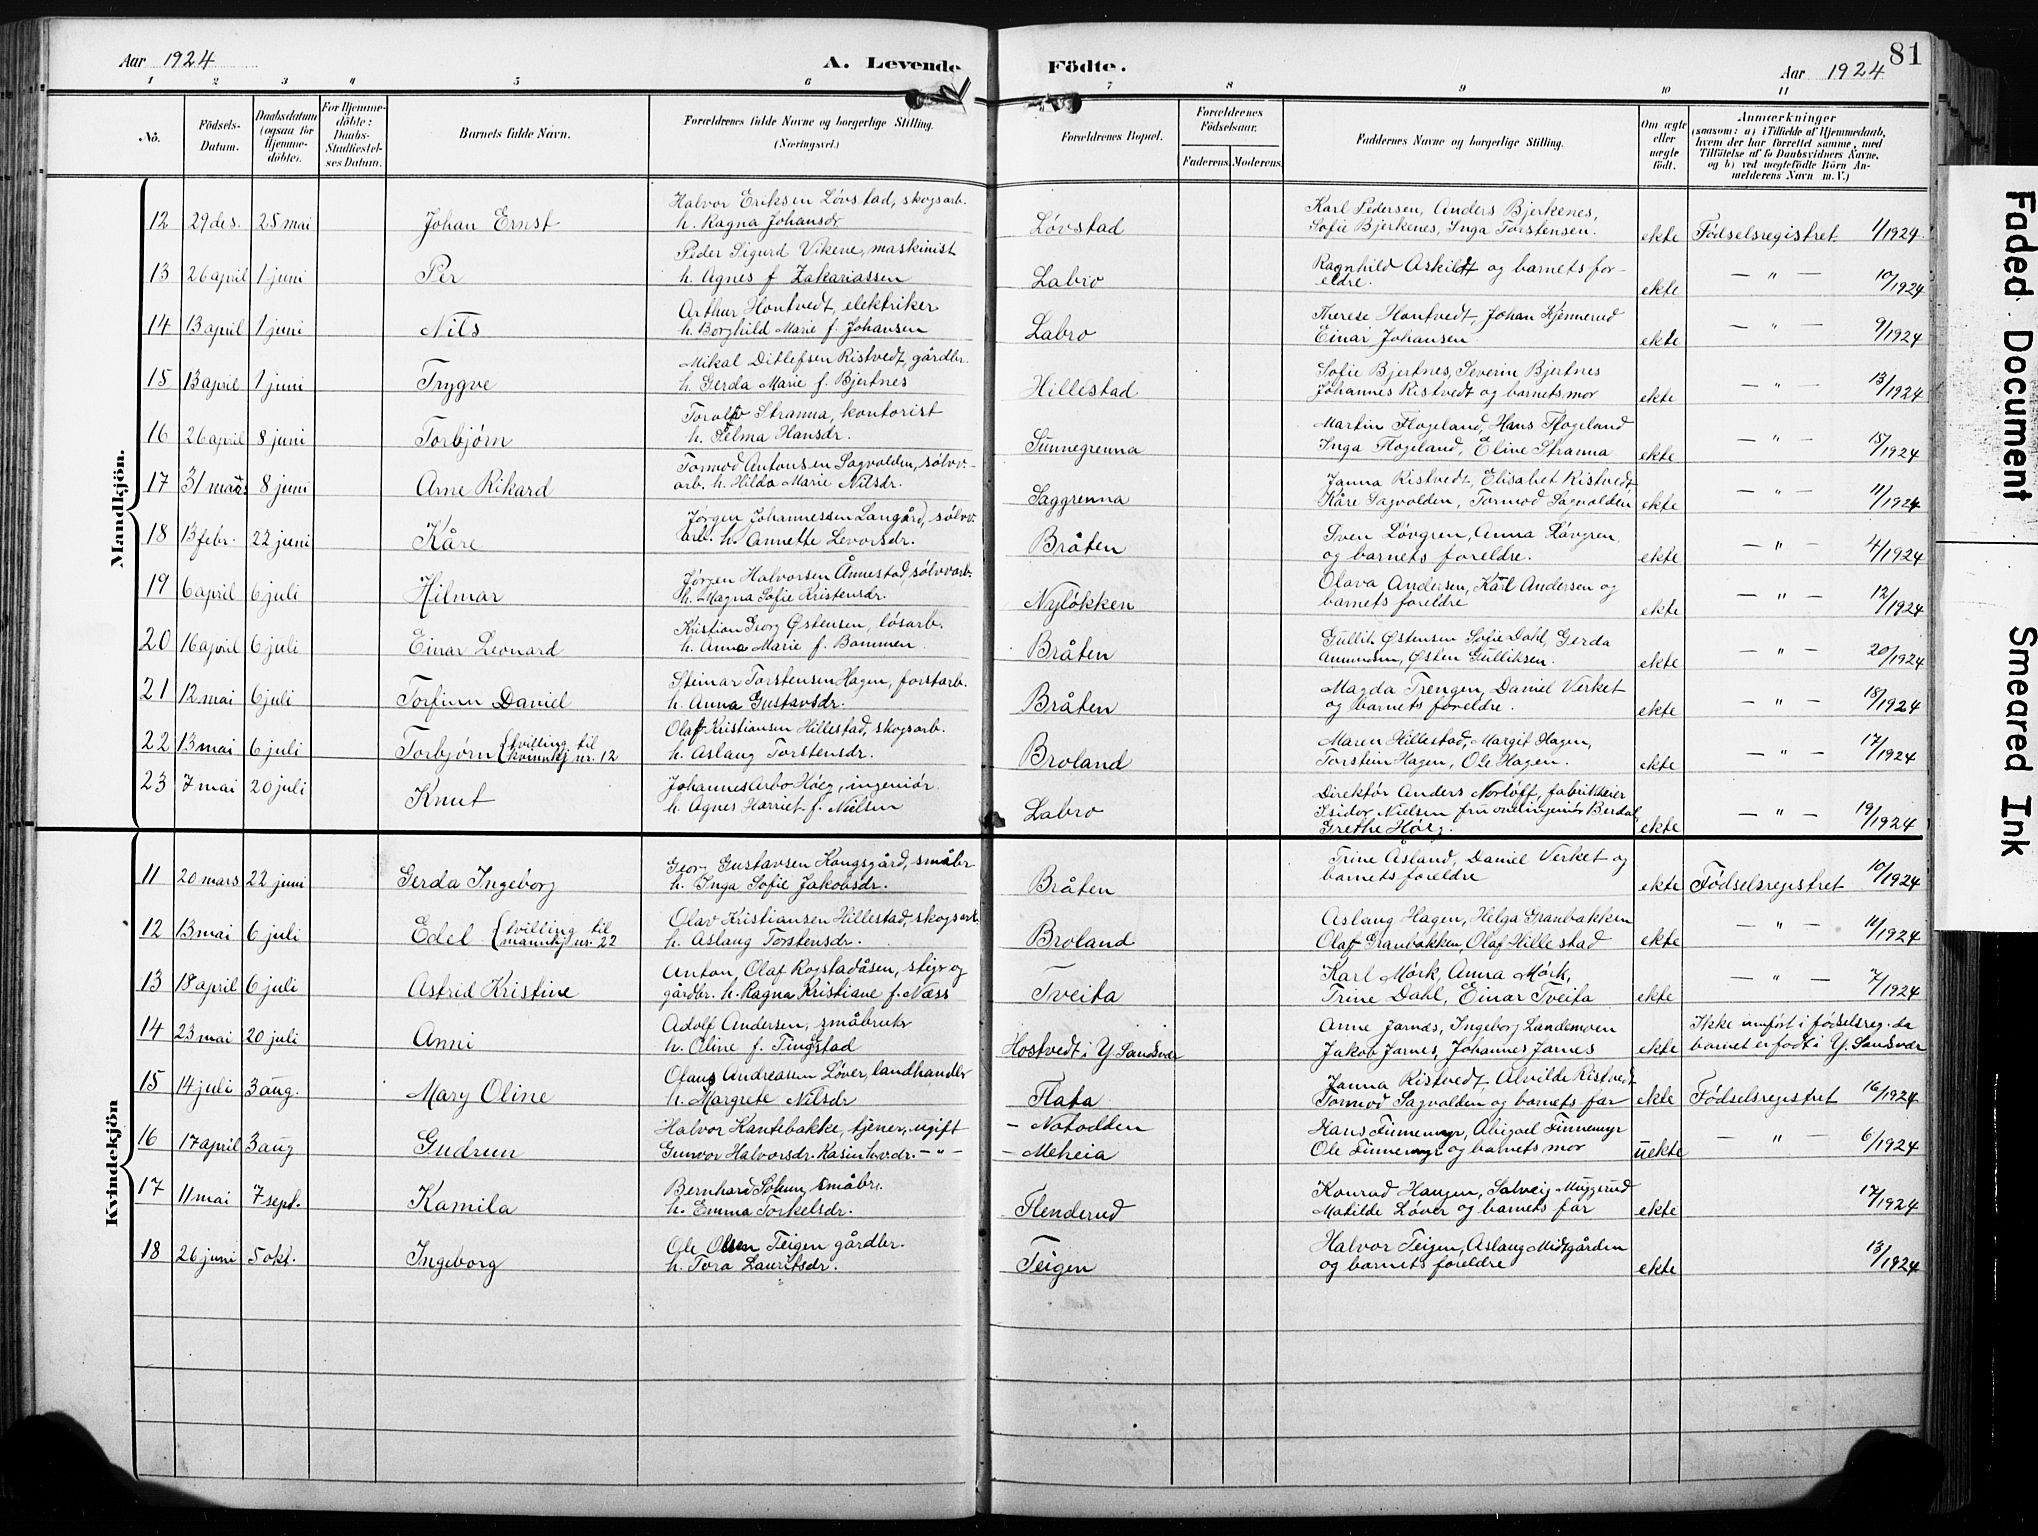 Aar 1924 A. Levende Födte. Aar 1924 81
1 2 3 4 5 6 7 8 9 10 11
No. Födsels-Datum. Daabsdatum (ogsaa for Hjemmedöbte). For Hjemmedöbte: Daabs-Stadfestelses Datum. Barnets fulde Navn. Forældrenes fulde Navne og borgerlige Stilling. (Næringsvei.) Forældrenes Bopæl. Forældrenes Födselsaar. Faderens. Moderens. Faddernes Navne og borgerlige Stilling. Om ægte eller uægte födt. Anmærkninger (saasom: a) i Tilfælde af Hjemmedaab, hvem der har forrettet samme, med Tilföielse af to Daabsvidners Navne, og b) ved uægtefödte Börn Anmelderens Navn m. V.)
Mandkjön.
12 29 des. 25 mai Johan Ernst Halvor Eriksen Løvstad, skogsarb. h. Ragna Johansdr Løvstad Karl Pedersen, Anders Bjerkenes, Sofie Bjerkenes, Inga Torstensen. ekte Fødselsregistret 1/1924.
13 26 april 1 juni Per Peder Sigurd Vikene, maskinist h. Agnes f Zakariassen Labro Ragnhild Askildt og barnets foreldre. ekte — " — 10/1924
14 13 april 1 juni Nils Arthur Hontvedt, elektriker h. Borghild Marie f. Johansen Labro Therese Hontvedt, Johan Kjennerud Einar Johansen ekte — " — 9/1924
15 13 april 1 juni Trygve Mikal Ditlefsen Ristvedt, gårdbr. h. Gerda Marie f. Bjertnes Hillestad Sofie Bjertnes, Severin Bjertnes Johannes Ristvedt og barnets mor ekte — " — 13/1924
16 26 april 8 juni Torbjørn Torolf Stranna, kontorist h. Selma Hansdr. Sunnegrenna Martin Flogeland, Hans Flogeland Inga Flogeland, Eline Stranna ekte — " — 15/1924
17 31 mars 8 juni Arne Rikard Tormod Antonsen Sagvolden, sølvv.-arb. h. Hilda Marie Nilsdr. Saggrenna Janna Ristvedt, Elisabet Ristvedt Kåre Sagvolden, Tormod Sagvolden ekte — " — 11/1924
18 13 febr. 22 juni Kåre Jørgen Johannessen Langård, sølvv. arb. h. Annette Levorsdr. Bråten Sven Løvgren, Anna Løvgren, og barnets foreldre. ekte — " — 4/1924
19 6 april 6 juli Hilmar Jørgen Halvorsen Ånnestad, sølvvarb. h. Magna Sofie Kristensdr. Nyløkken Olava Andersen, Karl Andersen og barnets foreldre ekte — " — 12/1924
20 16 april 6 juli Einar Leonard Kristian Georg Østensen, løsarb. h. Anna Marie f. Bommen Bråten Gullik Østensen Sofie Dahl, Gerda Ammundsen, Østen Gulliksen. ekte — " — 20/1924
21 12 mai 6 juli Torfinn Daniel Steinar Torstensen Hagen, forstarb. h. Anna Gustavsdr. Bråten Magda Trengen, Daniel Verket og barnets foreldre. ekte — " — 18/1924
22 13 mai 6 juli Torbjørn (tvilling til kvinnkj nr. 12 Olaf Kristiansen Hillestad, skogsarb. h. Aslaug Torstensdr. Broland Maren Hillestad, Margit Hagen, Torstein Hagen, Ole Hagen. ekte — " — 17/1924
23 7 mai 20 juli Knut Johannes Arbo Höeg, ingeniör h. Agnes Harriet f. Nielsen Labro Direktör Anders Norløff, fabrikkeier Isidor Nielsen fru overingeniör Berdal, Grethe Höeg. ekte — " — 19/1924
Kvindekjön
11 20 mars 22 juni Gerda Ingeborg Georg Gustavsen Kongsgård, småbr. h. Inga Sofie Jakobsdr. Bråten Trine Åsland, Daniel Verket og barnets foreldre ekte Fødselsregistret 10/1924
12 13 mai 6 juli Edel (tvilling til mannkj nr. 22 Olav Kristiansen Hillestad, skogsarb. h. Aslaug Torstensdr. Broland Aslaug Hagen, Helga Granbakken Olaf Granbakken, Olaf Hillestad ekte — " — 11/1924
13 18 april 6 juli Astrid Kristine Anton, Olaf Rogstadåsen, stigr og gårdbr. h. Ragna Kristiane f. Næss Tveita Karl Mörk, Anna Mörk, Trine Dahl, Einar Tveita ekte — " — 7/1924
14 23 mai 20 juli Anni Adolf Andersen, småbruker h. Oline f. Tingstad Hostvedt i Y. Sandsvær Anne Jarnæs, Ingeborg Landemoen Jakob Jarnes, Johannes Jarnes ekte Ikke innført i fødselsreg. da barnet er født i Y. Sandsvær
15 14 juli 3 aug. Mary Oline Olaus Andreasen Løver, landhandler h. Margrete Nilsdr Flata Janna Ristvedt, Alvilde Ristvedt Tormod Sagvolden og barnets far ekte Fødselsregistret 16/1924
16 17 april 3 aug Gudrun Halvor Kantebakke, tjener, ugift Gunvor Halvorsdr. - " - - Notodden - Meheia Hans Finnemyr, Abigael Finnemyr Ole Finnemyr og barnets mor uekte — " — 6/1924
17 11 mai 7 sept. Kamila Bernhard småbr. h. Emma Torkelsdr. Flenderud Konrad Haugen, Solveig Muggerud Matilde Løver og barnets far ekte 17/1924
18 26 juni 5 okt. Ingeborg Ole Olsen Teigen gårdbr. h. Tora Lauritsdr. Teigen Halvor Teigen, Aslaug Midtgården og barnets foreldre ekte 13/1924
Faded Document
Smeared Ink